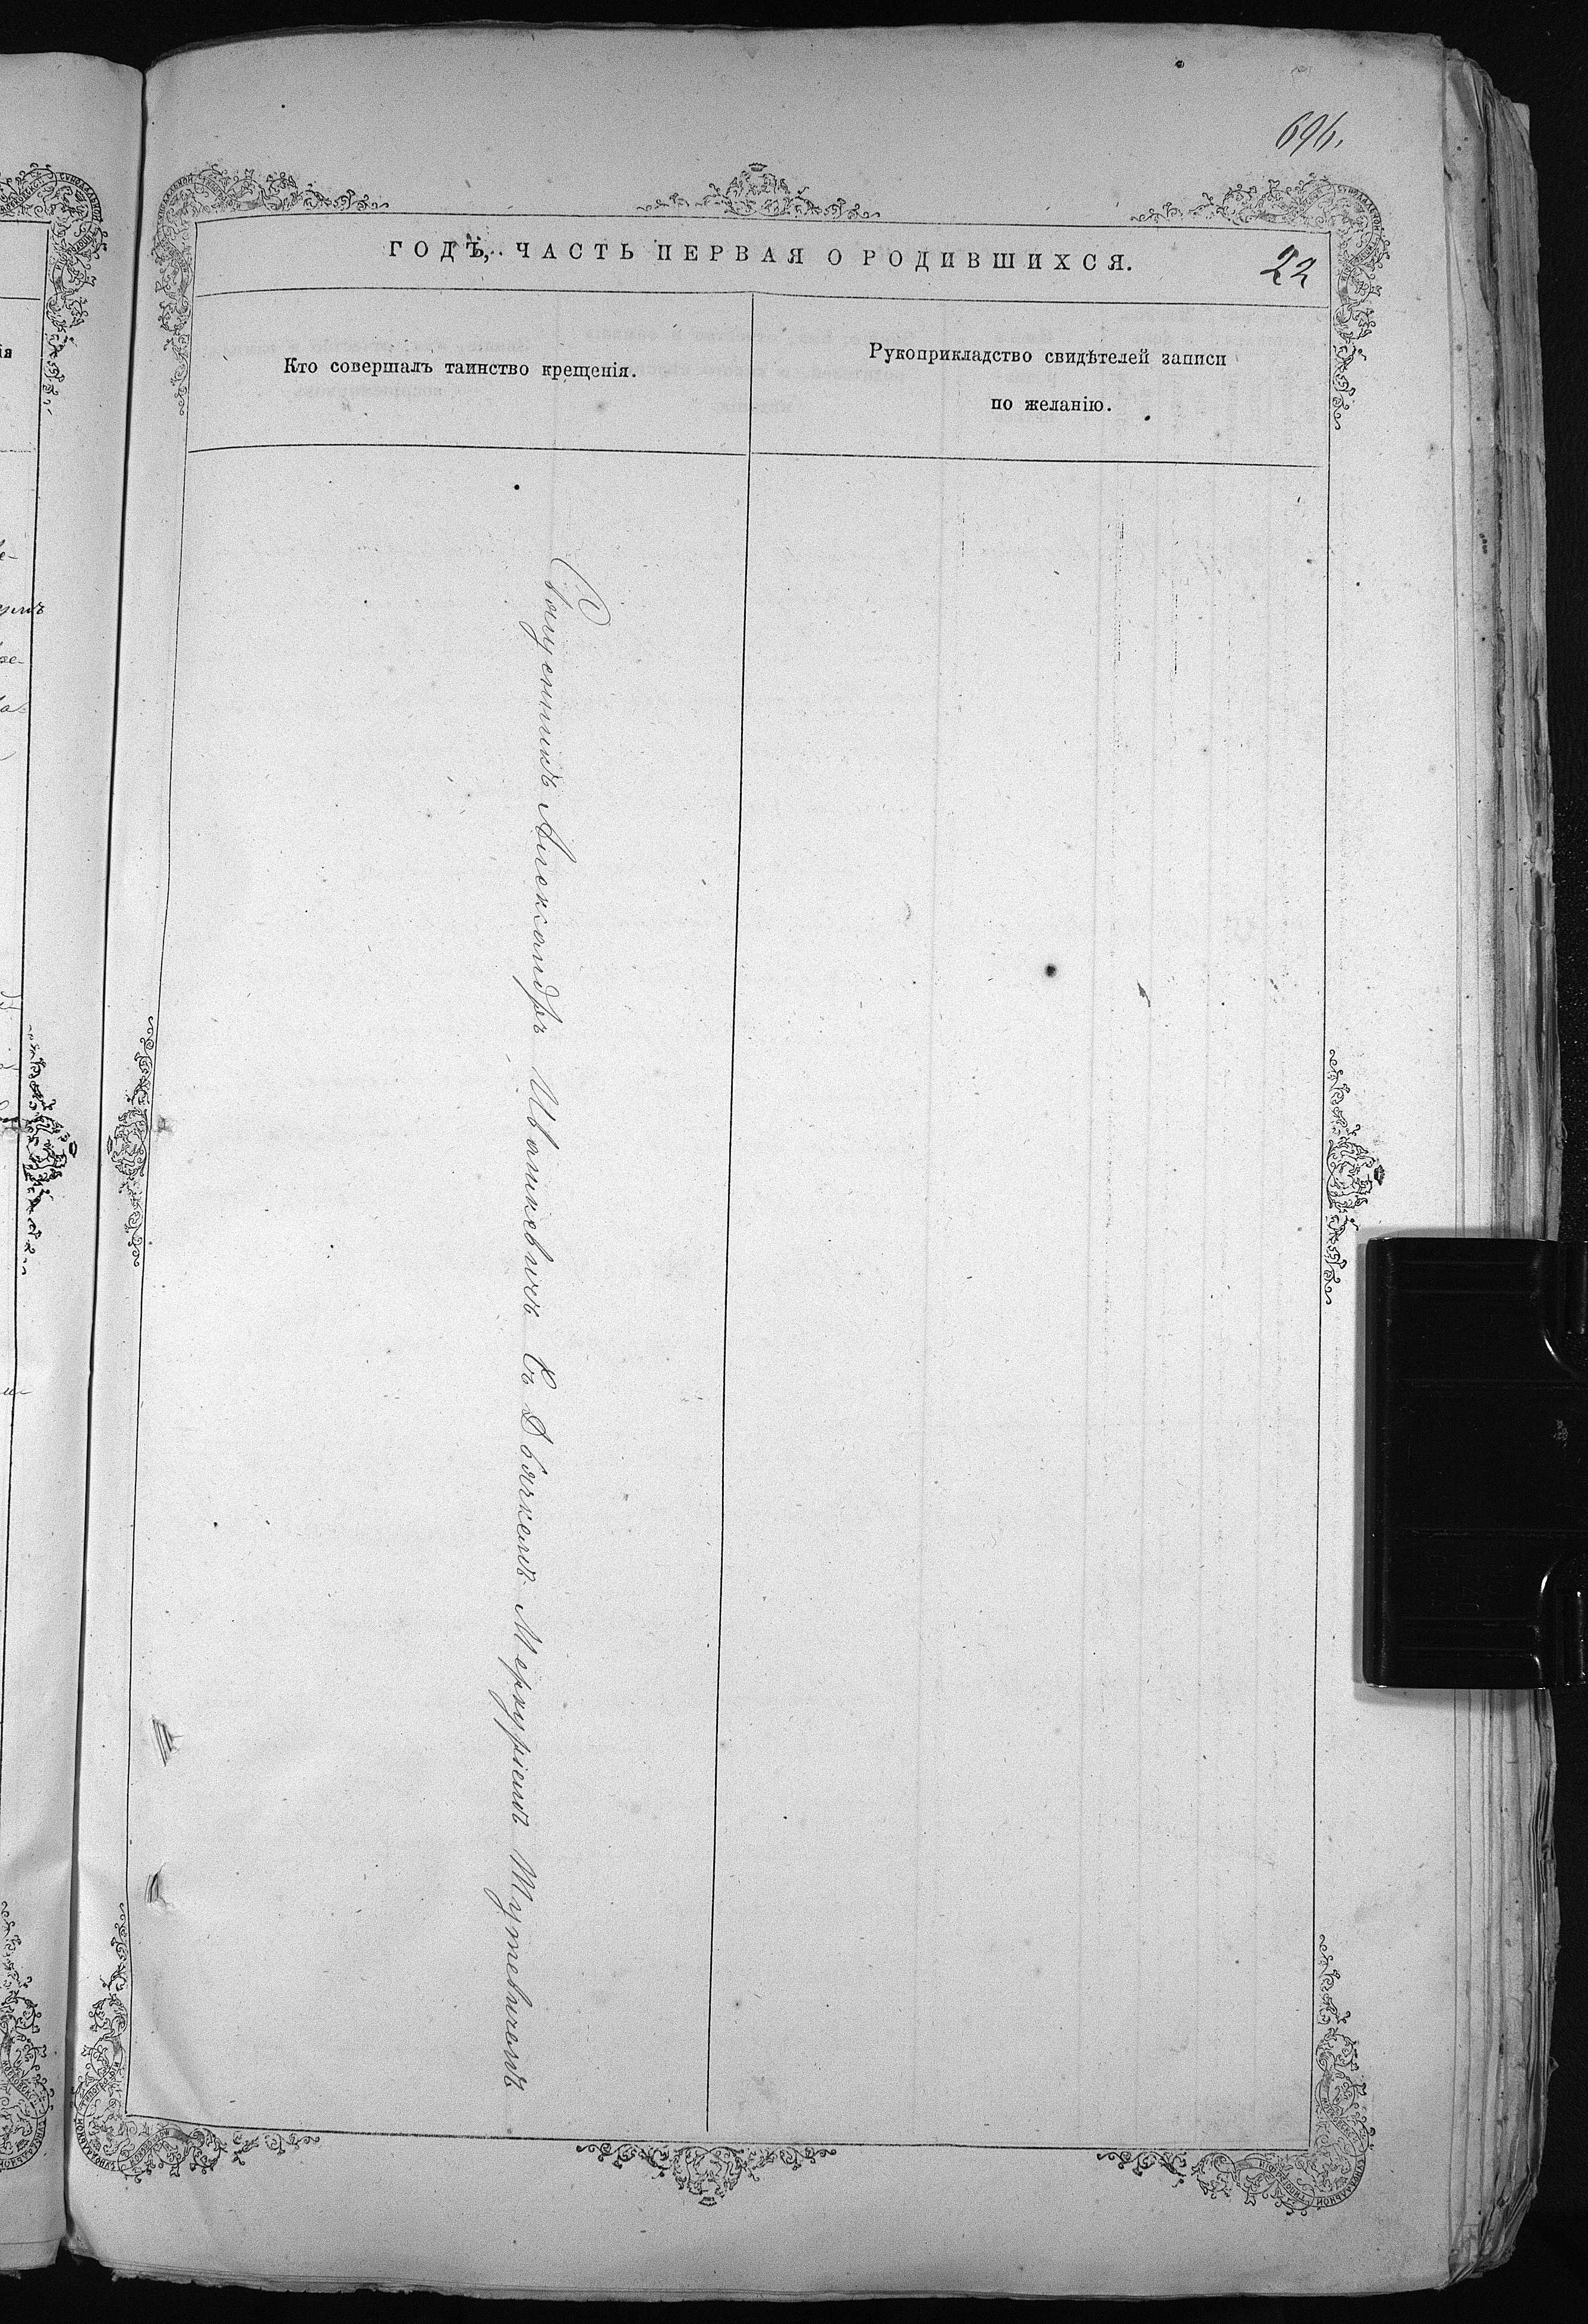 696.
ГОДЪ, ЧАСТЬ ПЕРВАЯ О РОДИВШИХСЯ.
22
Кто совершалъ таинство крещенія.
Рукоприкладство свидѣтелей записи
по желанію.
Священникъ Александръ Иванкевичъ Съ Дьячкемъ Меркуріемъ Шутевичомъ